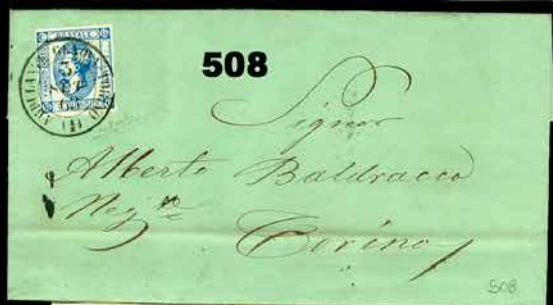 508
POSTALE
Signor
Alberto Baldracco
Neg.te
Torino
508